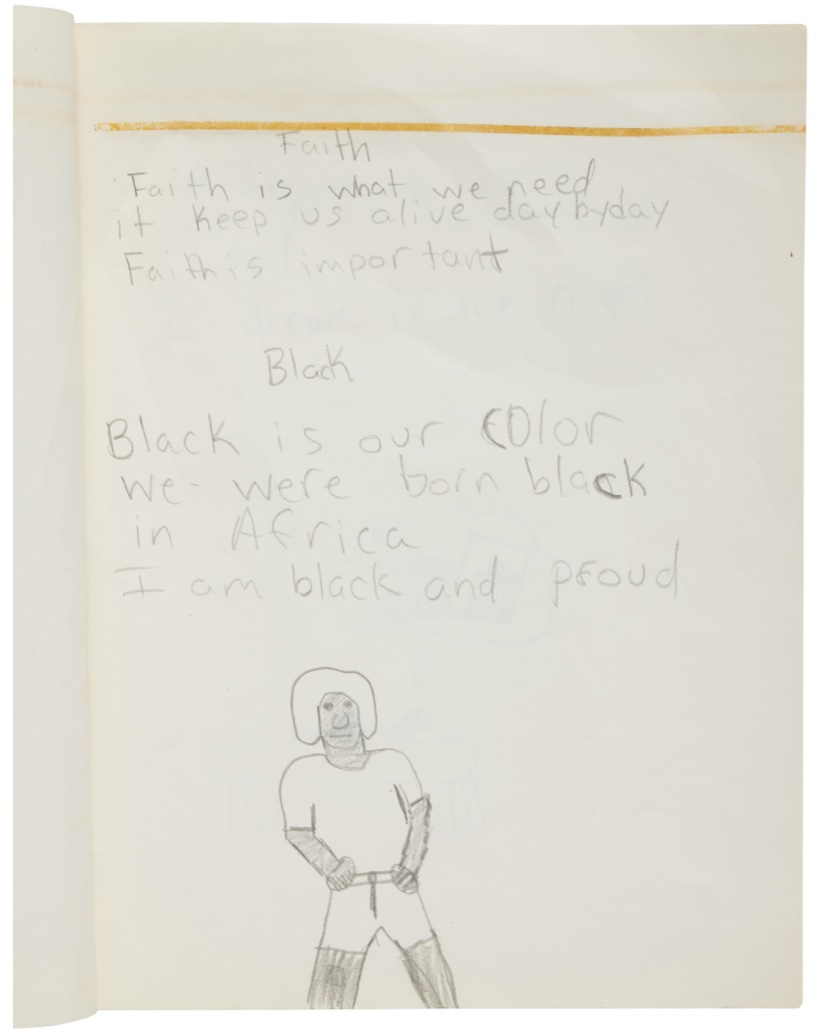 Faith
Faith is what we need
it keep us alive day by day
Faith is important
Black
Black is our color
we were born black
in Africa
I am black and proud